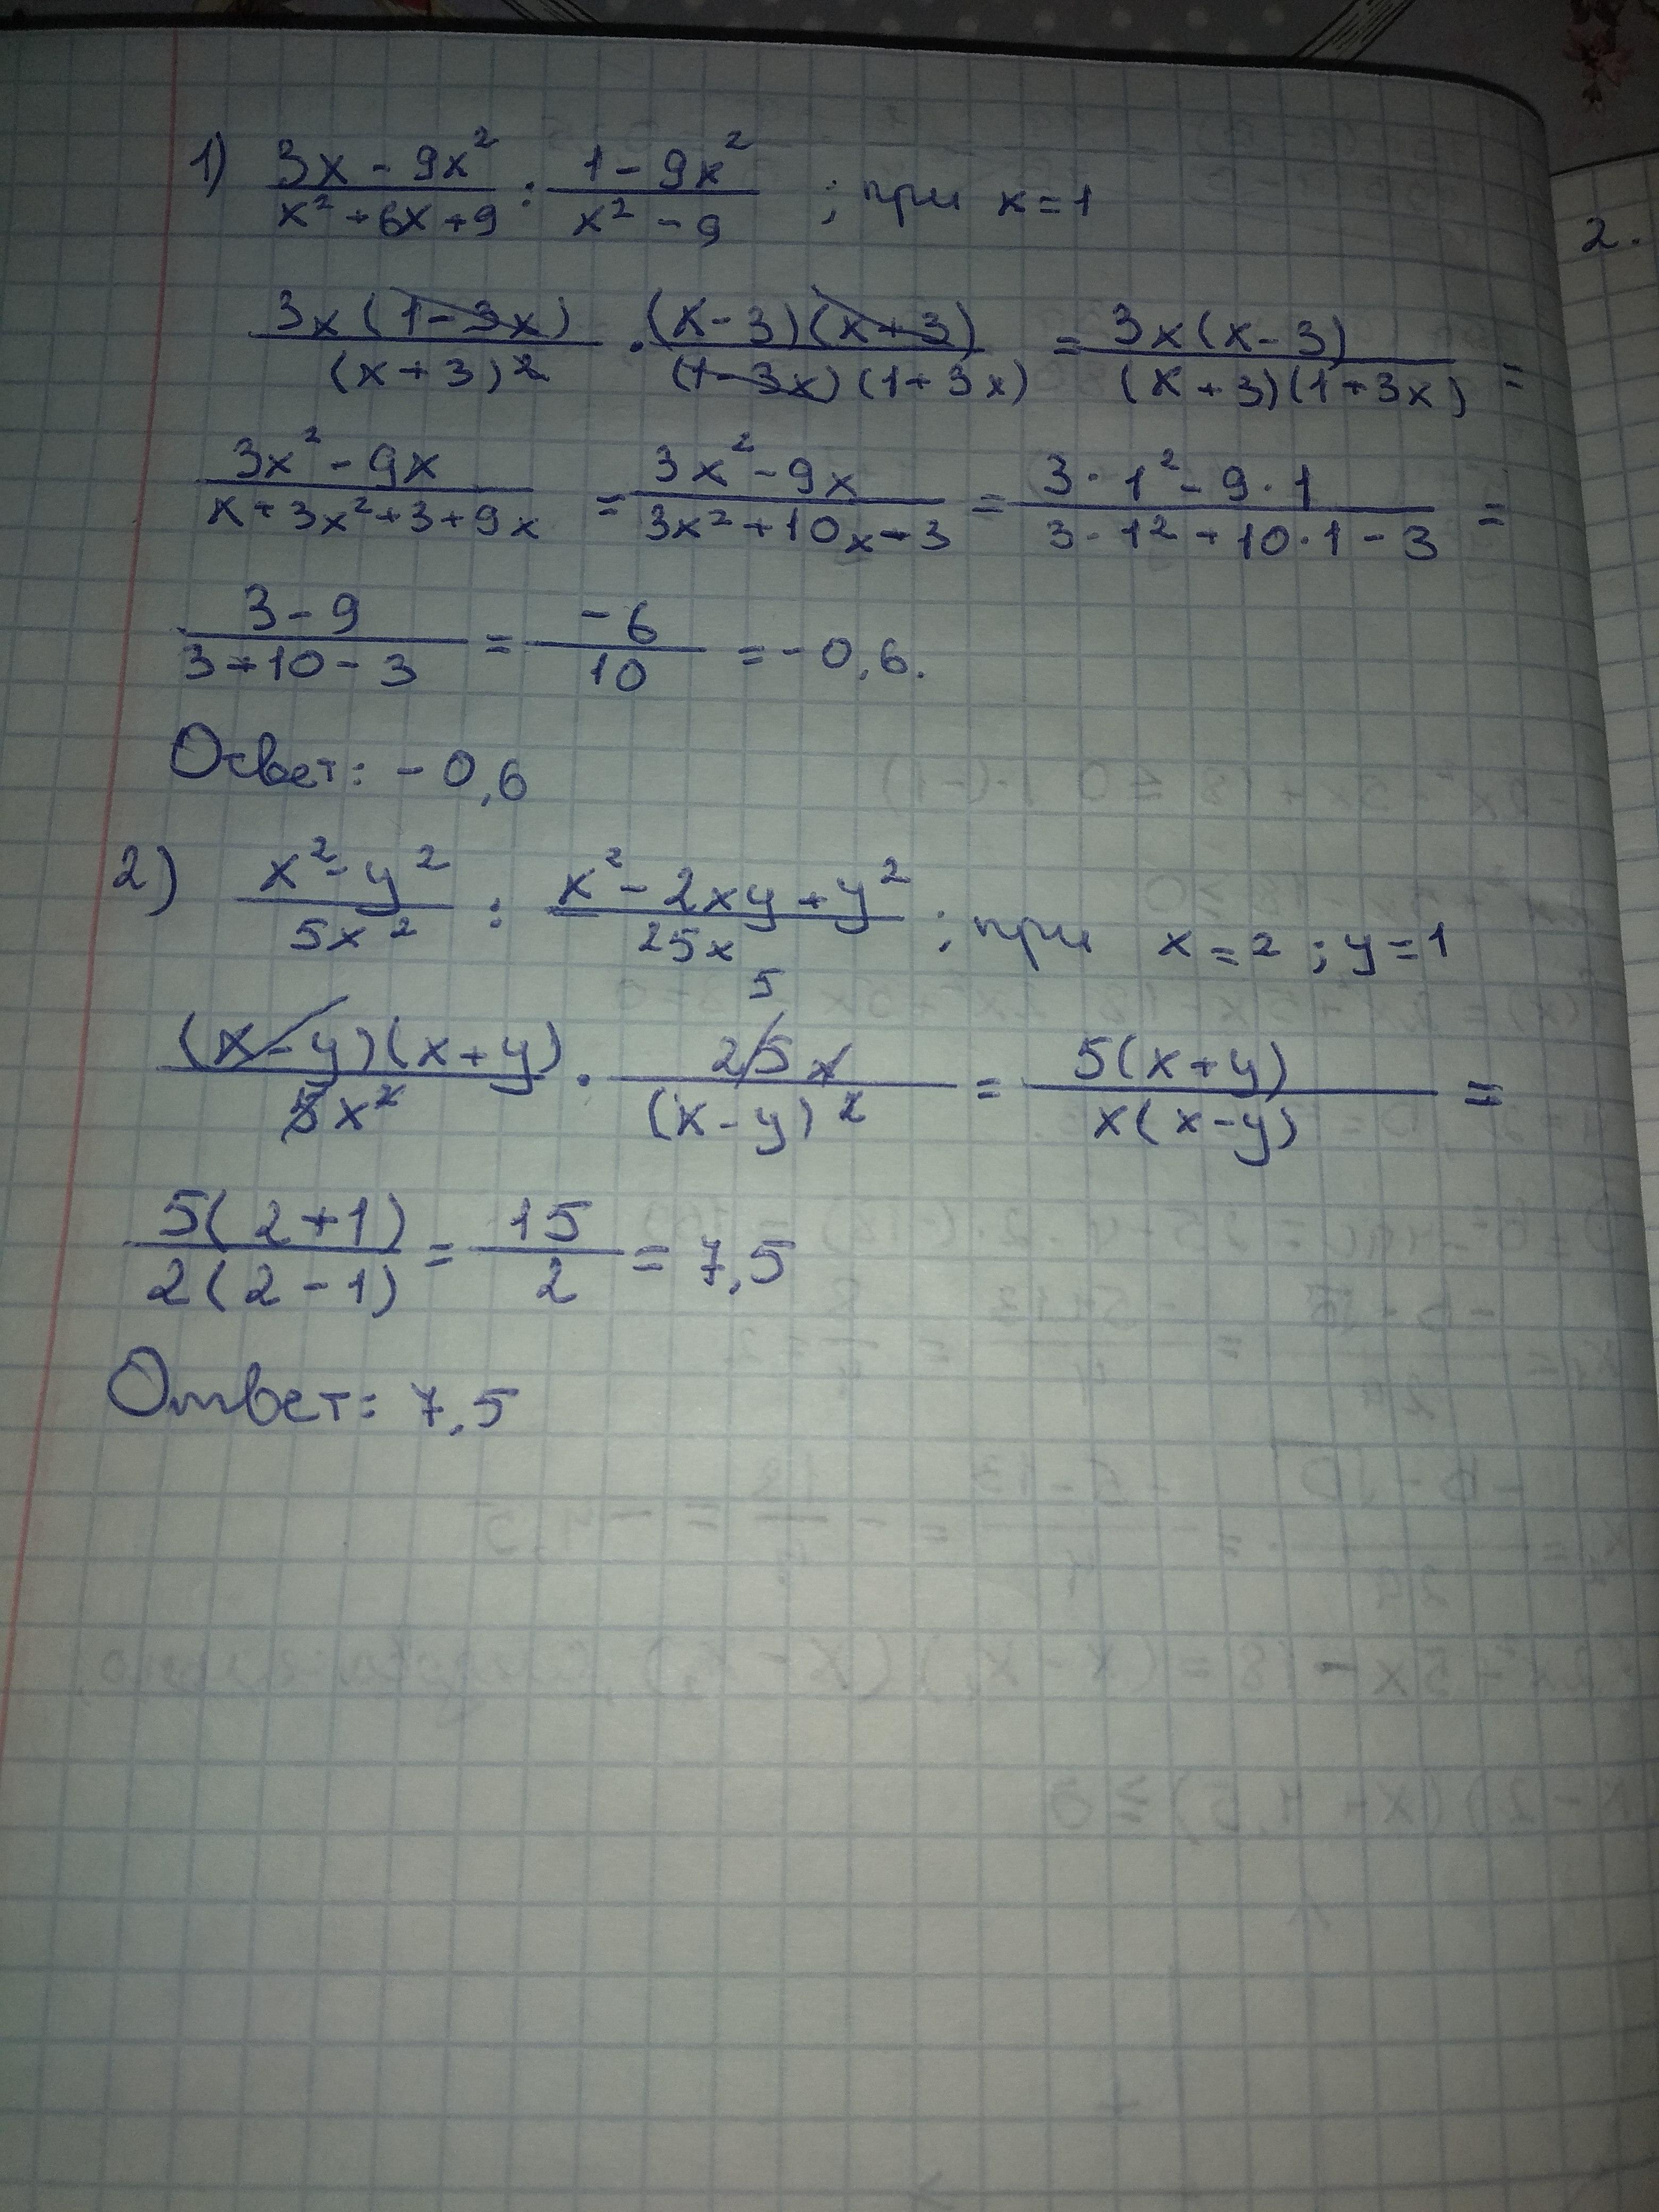 1) (3x - 9x²)/(x² + 6x + 9) : (1 - 9x²)/(x² - 9) ; при x = 1
(3x(1 - 3x))/((x + 3)²) · ((x - 3)(x + 3))/((1 - 3x)(1 + 3x)) = (3x(x - 3))/((x + 3)(1 + 3x)) =
(3x² - 9x)/(x + 3x² + 3 + 9x) = (3x² - 9x)/(3x² + 10x - 3) = (3 · 1² - 9 · 1)/(3 · 1² + 10 · 1 - 3) =
(3 - 9)/(3 + 10 - 3) = (-6)/10 = -0,6.
Ответ: -0,6
2) (x² - y²)/(5x²) : (x² - 2xy + y²)/(25x) ; при x = 2 ; y = 1
5
((x - y)(x + y))/(5x²) · (25x)/((x - y)²) = (5(x + y))/(x(x - y)) =
(5(2 + 1))/(2(2 - 1)) = 15/2 = 7,5
Ответ: 7,5
2.